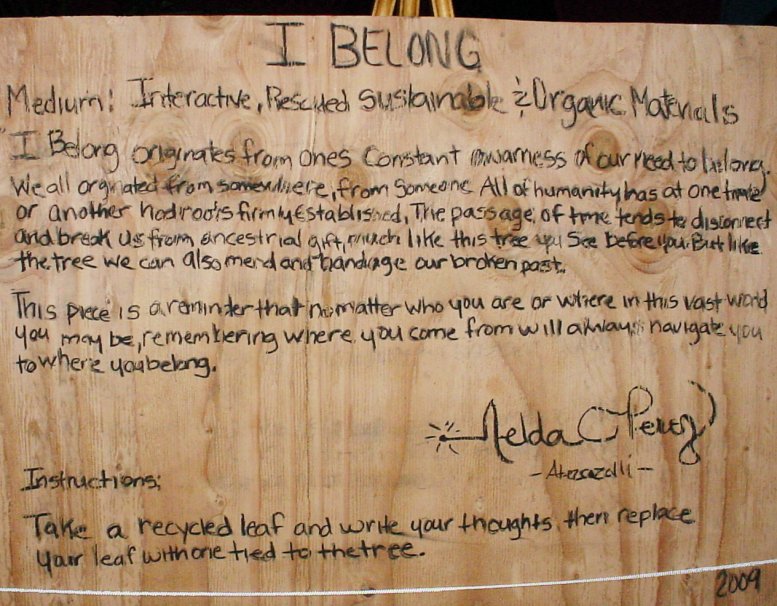 I BELONG
Medium: Interactive, Rescued Sustainable & Organic Materials
"I Belong originates from ones Constant awarness of our need to belong.
We all orginated from somewhere, from Someone. All of humanity has at one time
or another had roots firmly Established. The passage of time tends to disconnect
and break us from ancestrial gift, much like this tree you See before you. But like
the tree we can also mend and bandage our broken past.
This piece is a reminder that no matter who you are or where in this vast world
you may be, remembering where you come from will always navigate you
to where you belong.
Nelda C Perez
Instructions:
Take a recycled leaf and write your thoughts, then replace
your leaf with one tied to the tree.
2009